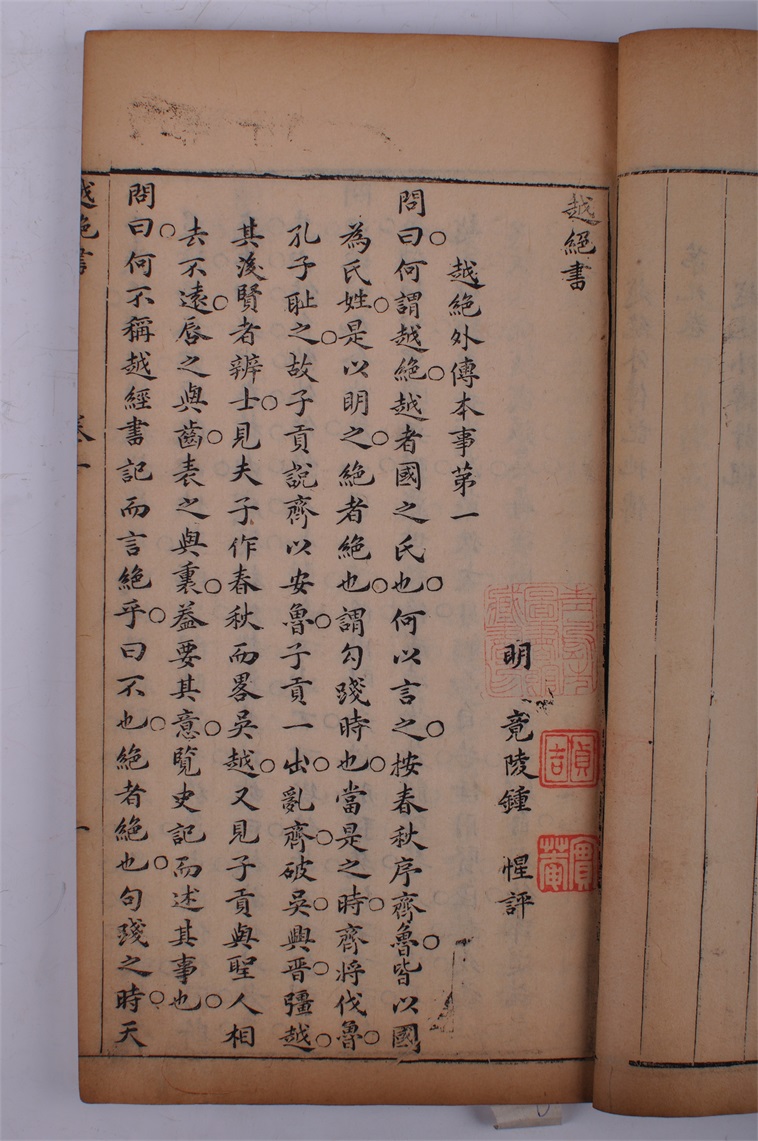 越絕書
明 竟陵鍾 惺評
越絕外傳本事第一
問曰何謂越絕越者國之氏也何以言之按春秋序齊魯皆以國
為氏姓是以明之絕者絕也謂勾踐時也當是之時齊將伐魯
孔子恥之故子貢說齊以安魯子貢一出亂齊破吳興晉彊越
其後賢者辨士見夫子作春秋而畧吳越又見子貢與聖人相
去不遠唇之與齒表之與裏葢要其意覧史記而述其事也
問曰何不稱越經書記而言絕乎曰不也絕者絕也句踐之時天
越絕書 卷一 一
貞吉